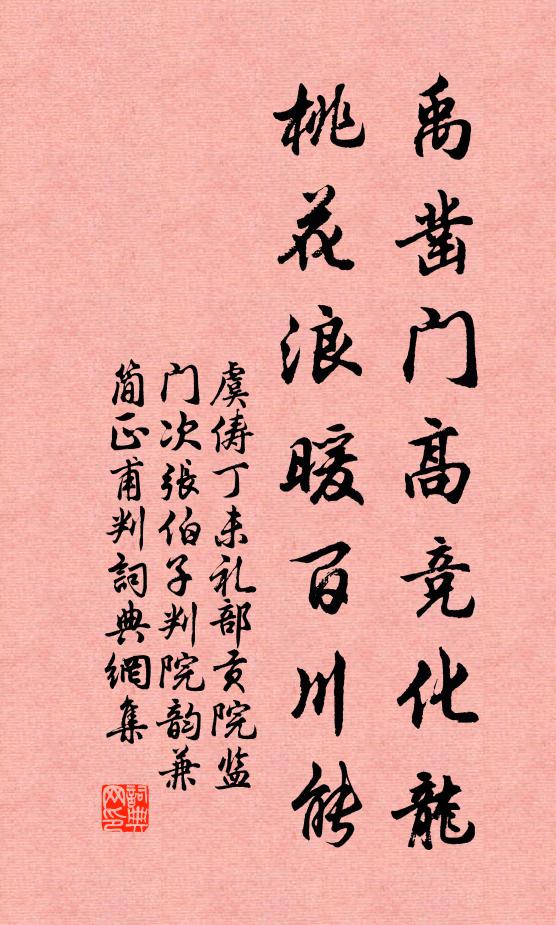 禹凿门高竞化龙
桃花浪暖百川能
虞俦丁未礼部贡院监
门次張伯子判院韵兼
简正甫判詞典網集
詞典
网印